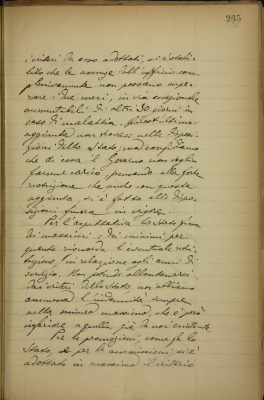 265
i criteri da esso adottati, si è stabi-
lito che le assenze dall'ufficio com-
plessivamente non possano supe-
rare i due mesi, in via eccezionale
aumentabili di altri 30 giorni in
caso di malattia. Quest'ultima
aggiunta non ricorre nelle disposi-
zioni dello Stato; ma confidiamo
che di essa il Governo non voglia
farcene carico, pensando alla forte
restrizione che anche con questa
aggiunta, si è fatta alle dispo-
sizioni finora in vigore.
Per l'aspettativa lo Stato fissa
dei massimi e dei minimi, per
quanto riguarda l'eventuale retri-
buzione, in relazione agli anni di
servizio. Non potendo allontanarci
dai criteri dello Stato noi abbiamo
ammessa l'indennità sempre
nella misura massima, che è però
inferiore a quella già da noi esistente.
Per le promozioni, come già lo
Stato, sia per le ammissioni, si è
adottato in massima il criterio